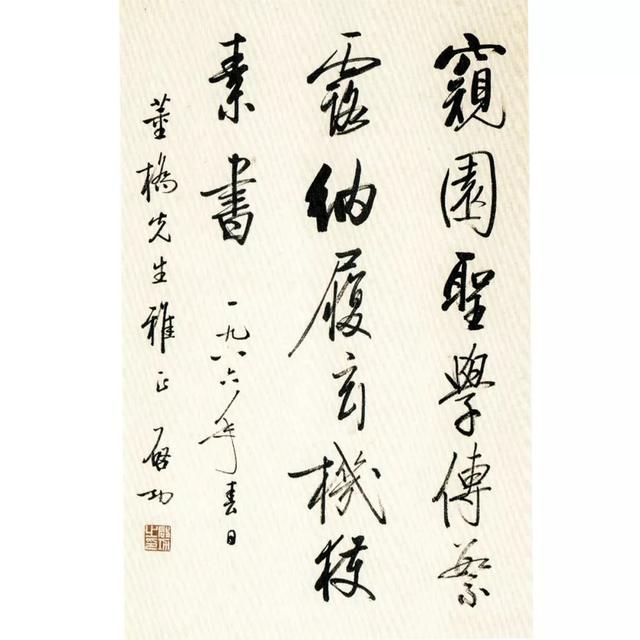 窺園聖學傳繁
露納履玄機授
素書 一九八六年春日
董橋先生雅正 啓功